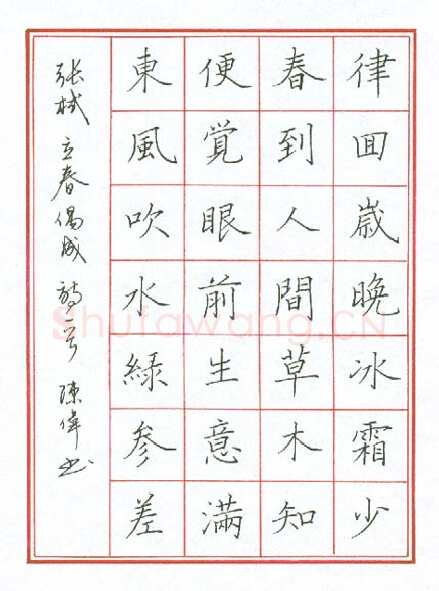 律回歳晩冰霜少
春到人間草木知
便覚眼前生意滿
東風吹水緑参差
张栻 立春偶成 诗一首 陳偉书
Shufawang.CN